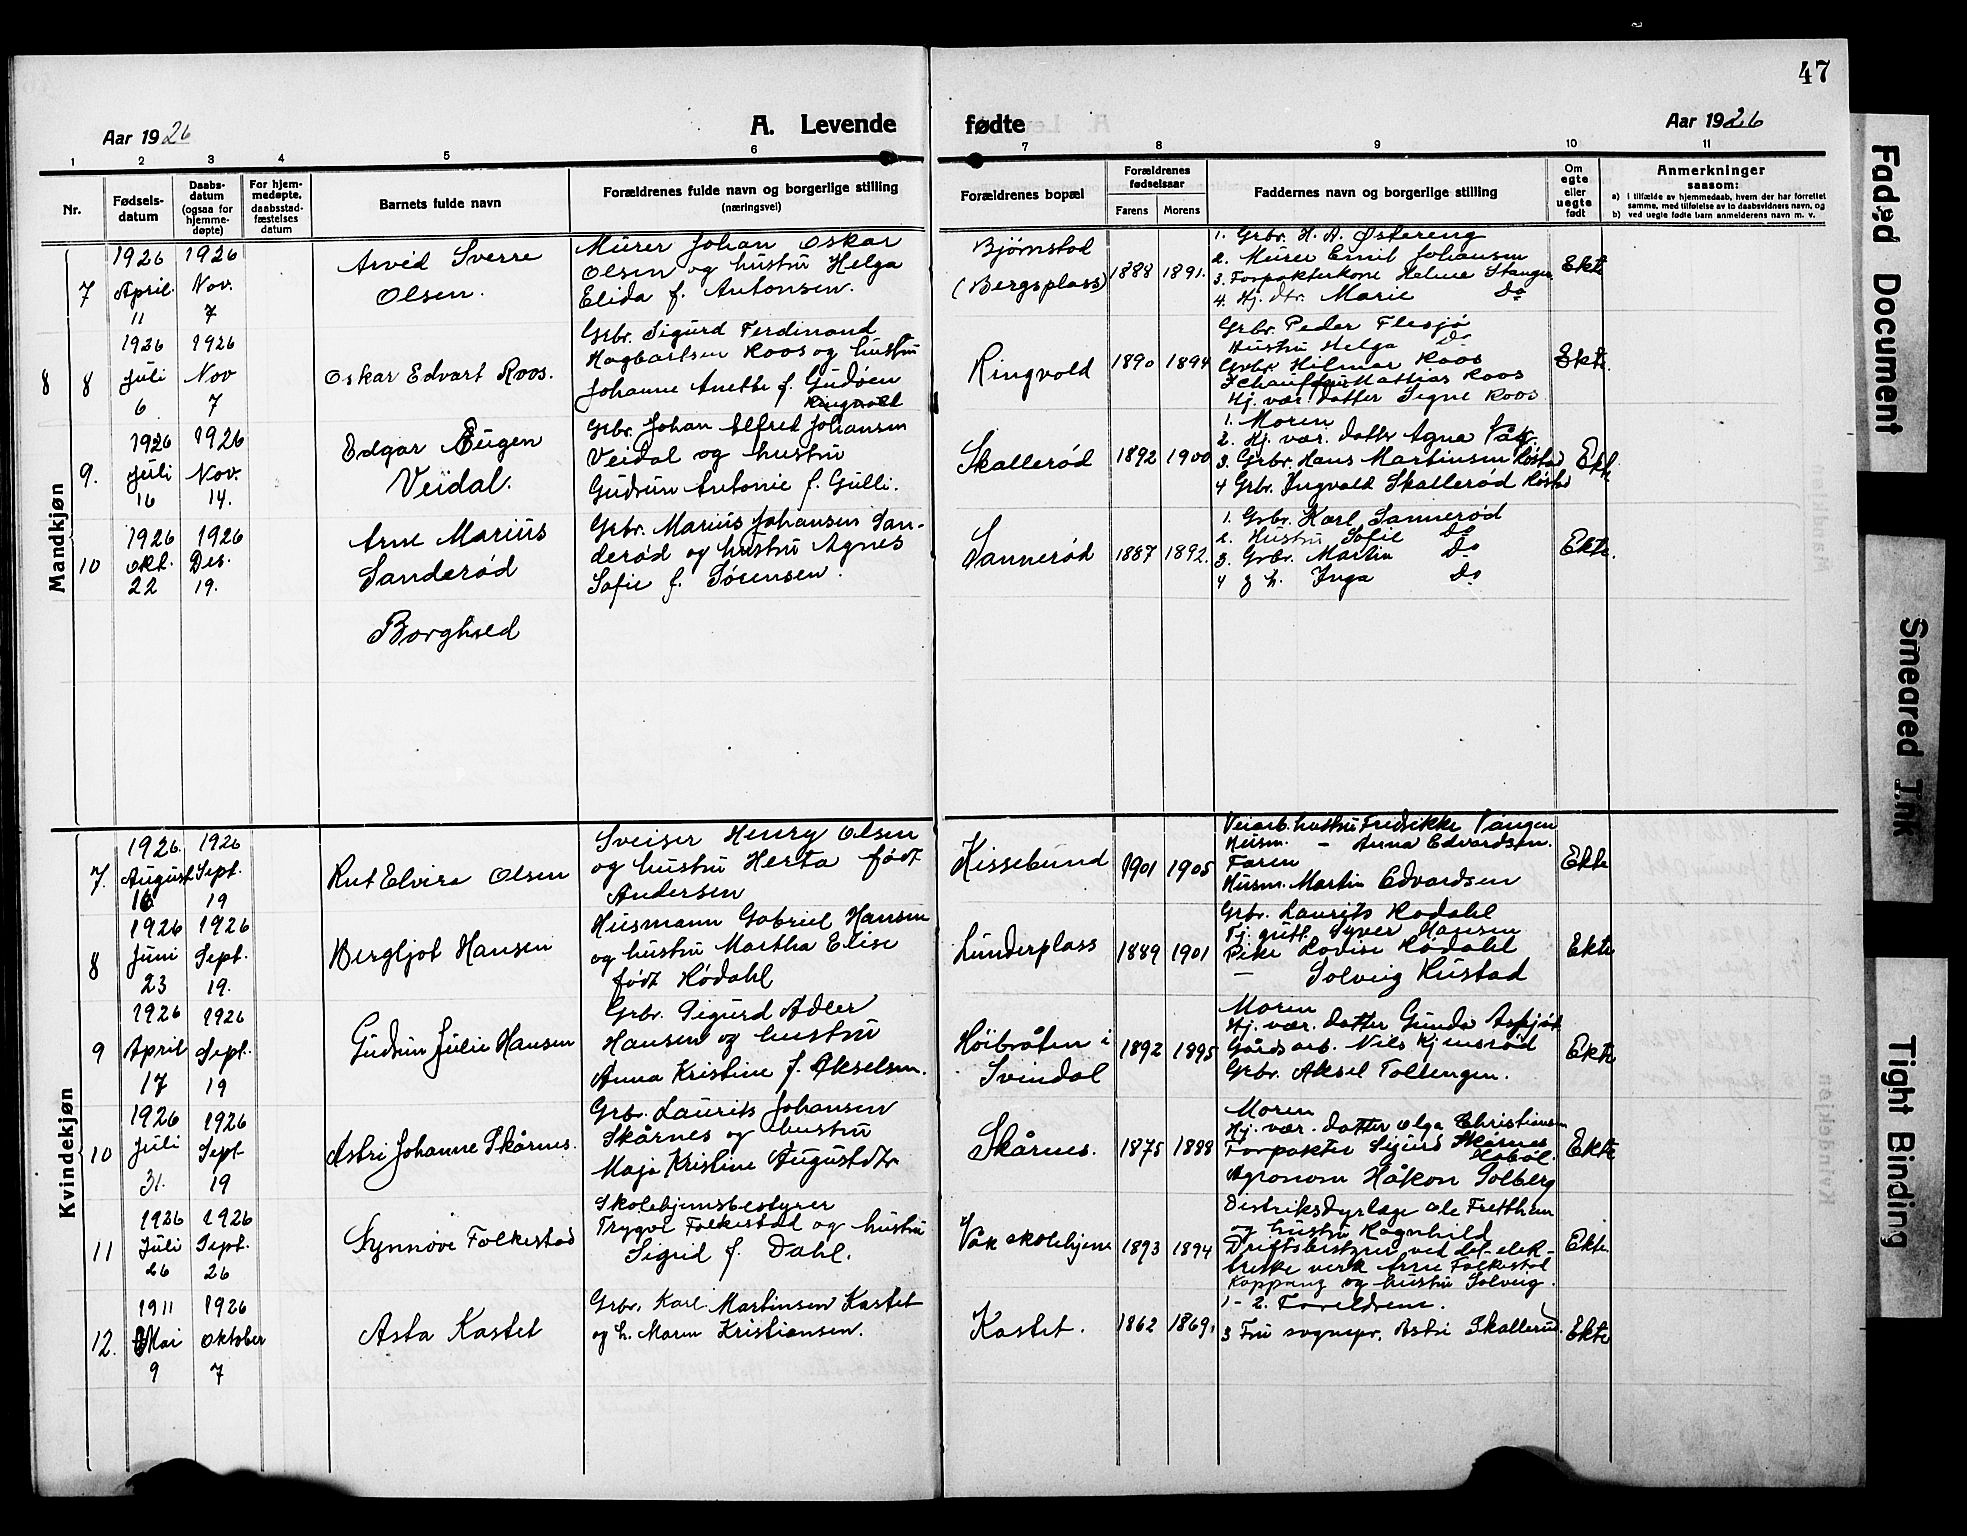 47
Aar 1926
A. Levende fødte
Aar 1926
1 2 3 4 5 6 7 8 9 10 11
Nr.
Fødsels-
datum
Daabs-
datum
(ogsaa for
hjemme-
døpte)
For hjem-
medøpte,
daabsstad-
fæstelses
datum
Barnets fulde navn
Forældrenes fulde navn og borgerlige stilling
(næringsvei)
Forældrenes bopæl
Forældrenes
fødselsaar
Farens Morens
Faddernes navn og borgerlige stilling
Om
egte
eller
uegte
født
Anmerkninger
saasom:
a) i tilfælde av hjemmedaab, hvem der har forrettet
samme, med tilføielse av to daabsvidners navn, og
b) ved uegte fødte barn anmelderens navn m. v.
Mandkjøn
7
1926
April
11
1926
Nov.
7
Arvid Sverre
Olsen.
Mürer Johan Oskar
Olsen og hustru Helga
Elida f. Antonsen.
Bjørnstad
(Bergsplass)
1888 1891.
1. Grbr. H. A. Østereng
2. Mürer Emil Johansen
3. Forpakterkone Halma Stangen
4. Hj. dtr. Marie Do
Ekte
8 8
1926
Juli
6
1926
Nov
7
Oskar Edvart Roos.
Grbr. Sigurd Ferdinand
Hagbartsen Roos og hustru
Johanne Anette f. Gudøen
Ringvold
Ringvold
1890 1894
Grbr. Peder Flesjø
Hustru Helga Do
Grbr. Hilmar Roos
Schauffør Mattias Roos
Hj. vær. datter Signe Roos
Ekte
9.
1926
Juli
16
1926
Nov.
14.
Edgar Eugen
Veidal.
Grbr. Johan Alfred Johansen
Veidal og hustru
Gudrun Antonie f. Gulli.
Skallerød
1892 1900
1. Moren
2. Hj. vær. datter Agna Våg.
3. Grbr. Hans Martinsen
4 Grbr. Ingvald Skallerød
Ekt.
10
1926
Okt.
22
1926
Des.
19.
Arne Marius
Sanderød
Grbr. Marius Johansen San-
derød og hustru Agnes
Sofie f. Sørensen.
Sannerød
1887 1892.
1. Grbr. Karl Sannerød
2. Hustru Sofie Do
3. Grbr. Martin Do
4 g h. Inga Do
Ekte.
Borghild
Kvindekjøn
7.
1926
August
16
1926
Sept.
19
Rut Elvira Olsen
Sveiser Henry Olsen
og hustru Herta født
Andersen
Kissebund
1901 1905
Veiarb. hustru Fredrikke Vangen
Husm. – Anna Edvardsen.
Faren
Husm. Martin Edvardsen
Ekte
8
1926
Juni
23
1926
Sept.
19.
Bergljot Hansen
Husmann Gabriel Hansen
og hustru Martha Elise
født Hødahl
Lunderplass
1889 1901
Grbr. Laurits Hødahl
Tj. gutt. Syver Hansen
Pike Lovise Hødahl
– Solveig Hustad
Ekte
9
1926
April
17
1926
Sept.
19
Gudrun Julie Hansen
Grbr. Sigurd Adler
Hansen og hustru
Anna Kristine f. Akselsen.
Høibråten i
Svindal
1892 1895
Moren
Hj. vær. datter Gunda
Gårdsarb. Nils Kjensrød
Grbr. Aksel Tollengen.
Ekte
10
1926
Juli
31.
1926
Sept
19
Astri Johanne Skårnes.
Grb. Laurits Johansen
Skårnes og hustru
Maja Kristine Augustdtr
Skårnes.
1875 1888
Moren
Hj. vær. datter Olga Christiansen
Forpakter Sigurd Skårnes
Hobøl.
Agronom Håkon Solberg
Ekte
11
1926
Juli
26
1926
Sept.
26
Synnøve Folkestad
Skolehjemsbestyrer
Trygve Folkestad og hustru
Sigrid f. Dahl.
Våk skolehjem
1893 1894
Distriksdyrlæge Ole Fretthem
og hustru Ragnhild
Driftsbestyrer ved det elek-
triske verk Arne Folkestad
Koppang og hustru Solveig.
Ekte
12.
1911
Mai
9
1926
Oktober
7
Asta Kastet
Grbr. Karl Martinsen Kastet
og h. Maren Kristiansen.
Kastet.
1862 1869.
1 – 2. Foreldrene.
3 Fru sognepr. Astri Skallerud.
Ekte
Faded Document
Smeared Ink
Tight Binding